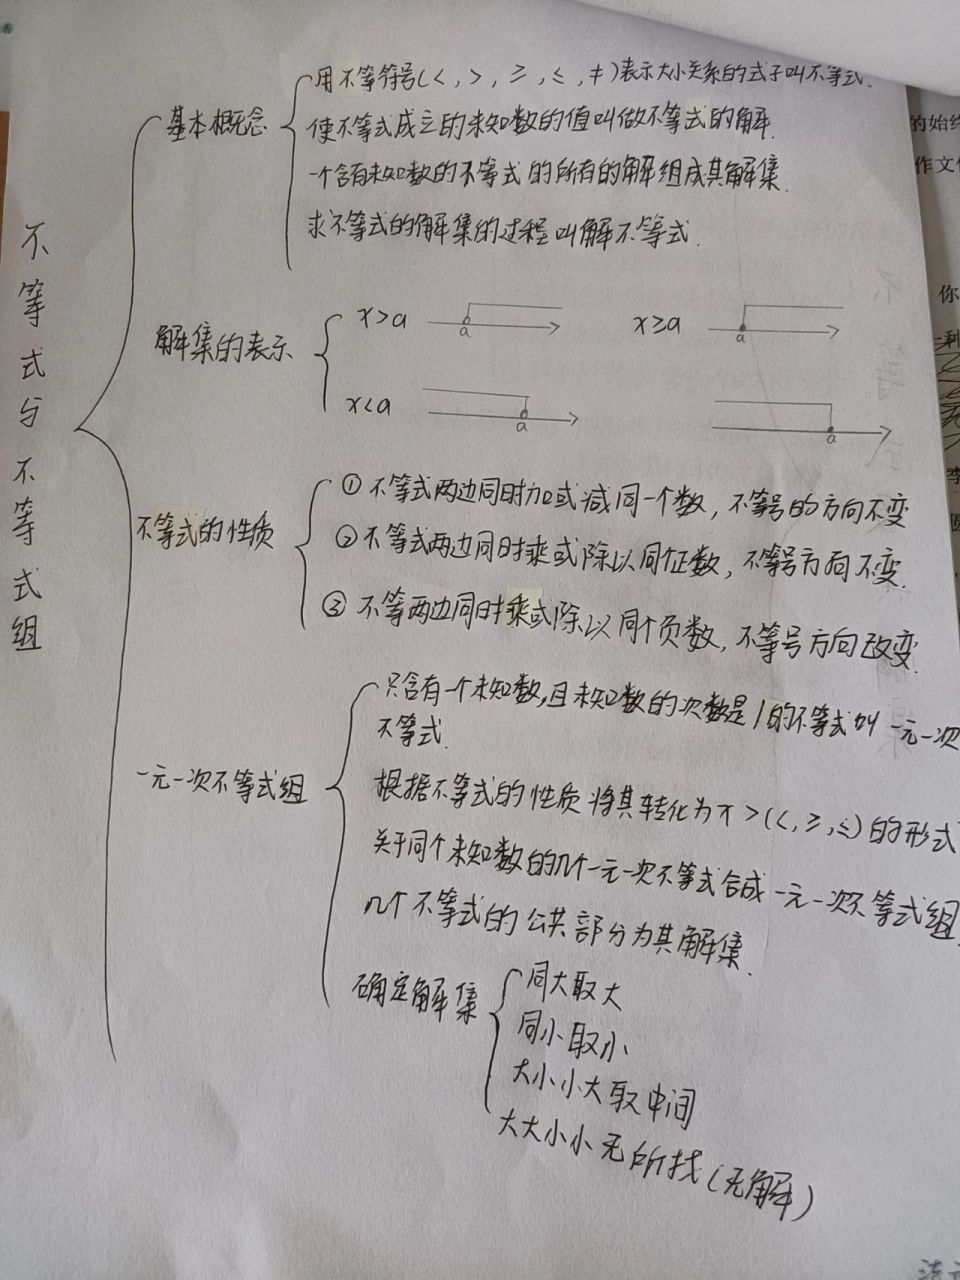 不等式与不等式组
基本概念
用不等符号(<,>,≥,≤,≠)表示大小关系的式子叫不等式.
使不等式成立的未知数的值叫做不等式的解.
一个含有未知数的不等式的所有的解组成其解集.
求不等式的解集的过程叫解不等式.
解集的表示
x>a
a
x≥a
a
x<a
a
a
不等式的性质
① 不等式两边同时加或减同一个数，不等号的方向不变
② 不等式两边同时乘或除以同个正数，不等号方向不变.
③ 不等两边同时乘或除以同个负数，不等号方向改变.
一元一次不等式组
只含有一个未知数,且未知数的次数是1的不等式叫一元一次
不等式.
根据不等式的性质将其转化为x>(<,≥,≤)的形式
关于同个未知数的几个一元一次不等式合成一元一次不等式组
几个不等式的公共部分为其解集.
确定解集
同大取大
同小取小
大小小大取中间
大大小小无所找(无解)
的始终
作文
你
利
李